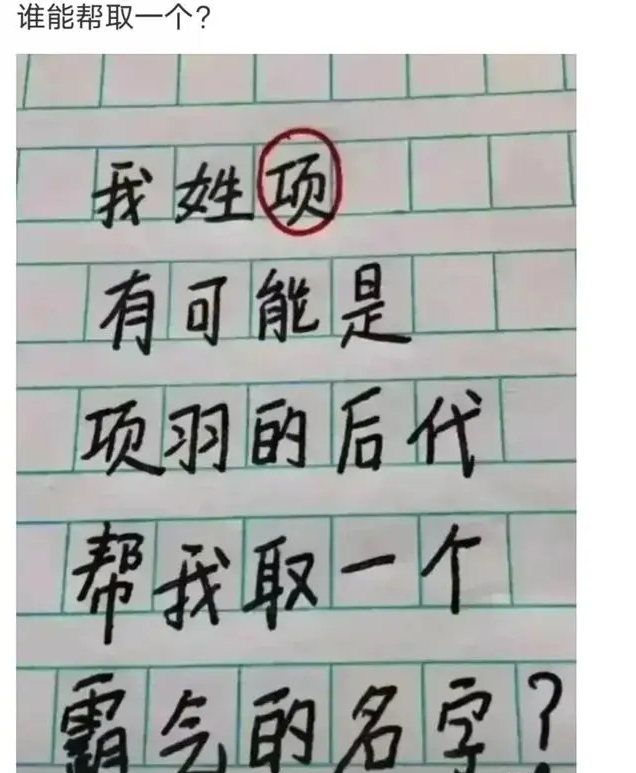 谁能帮取一个?
我姓项
有可能是
项羽的后代
帮我取一个
霸气的名字?